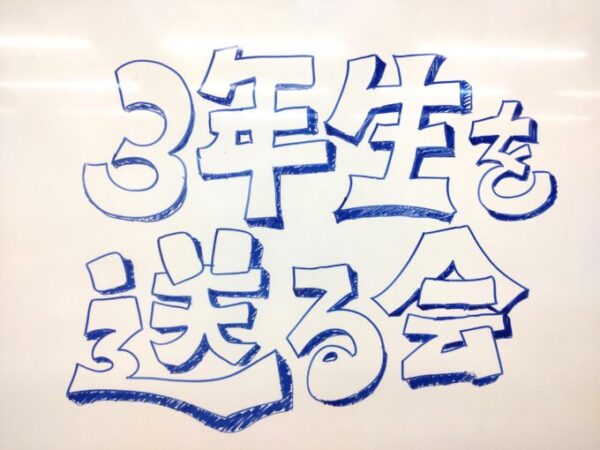 3年生を
送る会